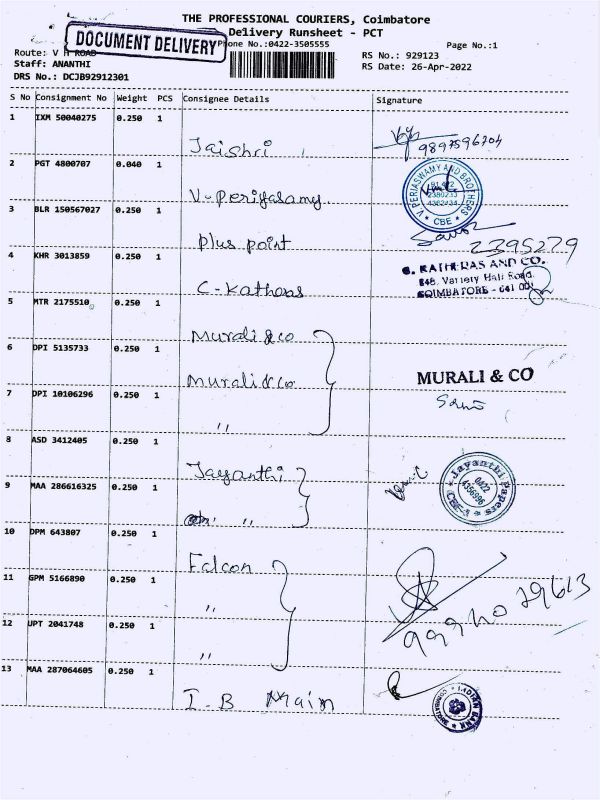 THE PROFESSIONAL COURIERS, Coimbatore
Delivery Runsheet - PCT
DOCUMENT DELIVERY
Phone No.:0422-3505555
Page No.:1
Route: V H ROAD
RS No.: 929123
Staff: ANANTHI
RS Date: 26-Apr-2022
DRS No.: DCJB92912301
S No Consignment No Weight PCS Consignee Details Signature
1 IXM 50040275 0.250 1
Jaishri
9897596704
2 PGT 4800707 0.040 1
V-periyasamy
V. PERIASWAMY AND BROTHERS
CBE
3 BLR 150567027 0.250 1
plus point
2395279
4 KHR 3013859 0.250 1
C-Kathoras
C. KATHERAS AND CO.
648, Variety Hall Road,
COIMBATORE - 641 001
5 MTR 2175510 0.250 1
Murali & co
6 DPI 5135733 0.250 1
Murali & Co
MURALI & CO
7 DPI 10106296 0.250 1
"
8 ASD 3412405 0.250 1
Jayanthi
Jayanthi Papers
0422
4356996
CBE-1
9 MAA 286616325 0.250 1
"
10 DPM 643807 0.250 1
Falcon
11 GPM 5166890 0.250 1
"
12 UPT 2041748 0.250 1
"
13 MAA 287064605 0.250 1
I-B Main
INDIAN BANK